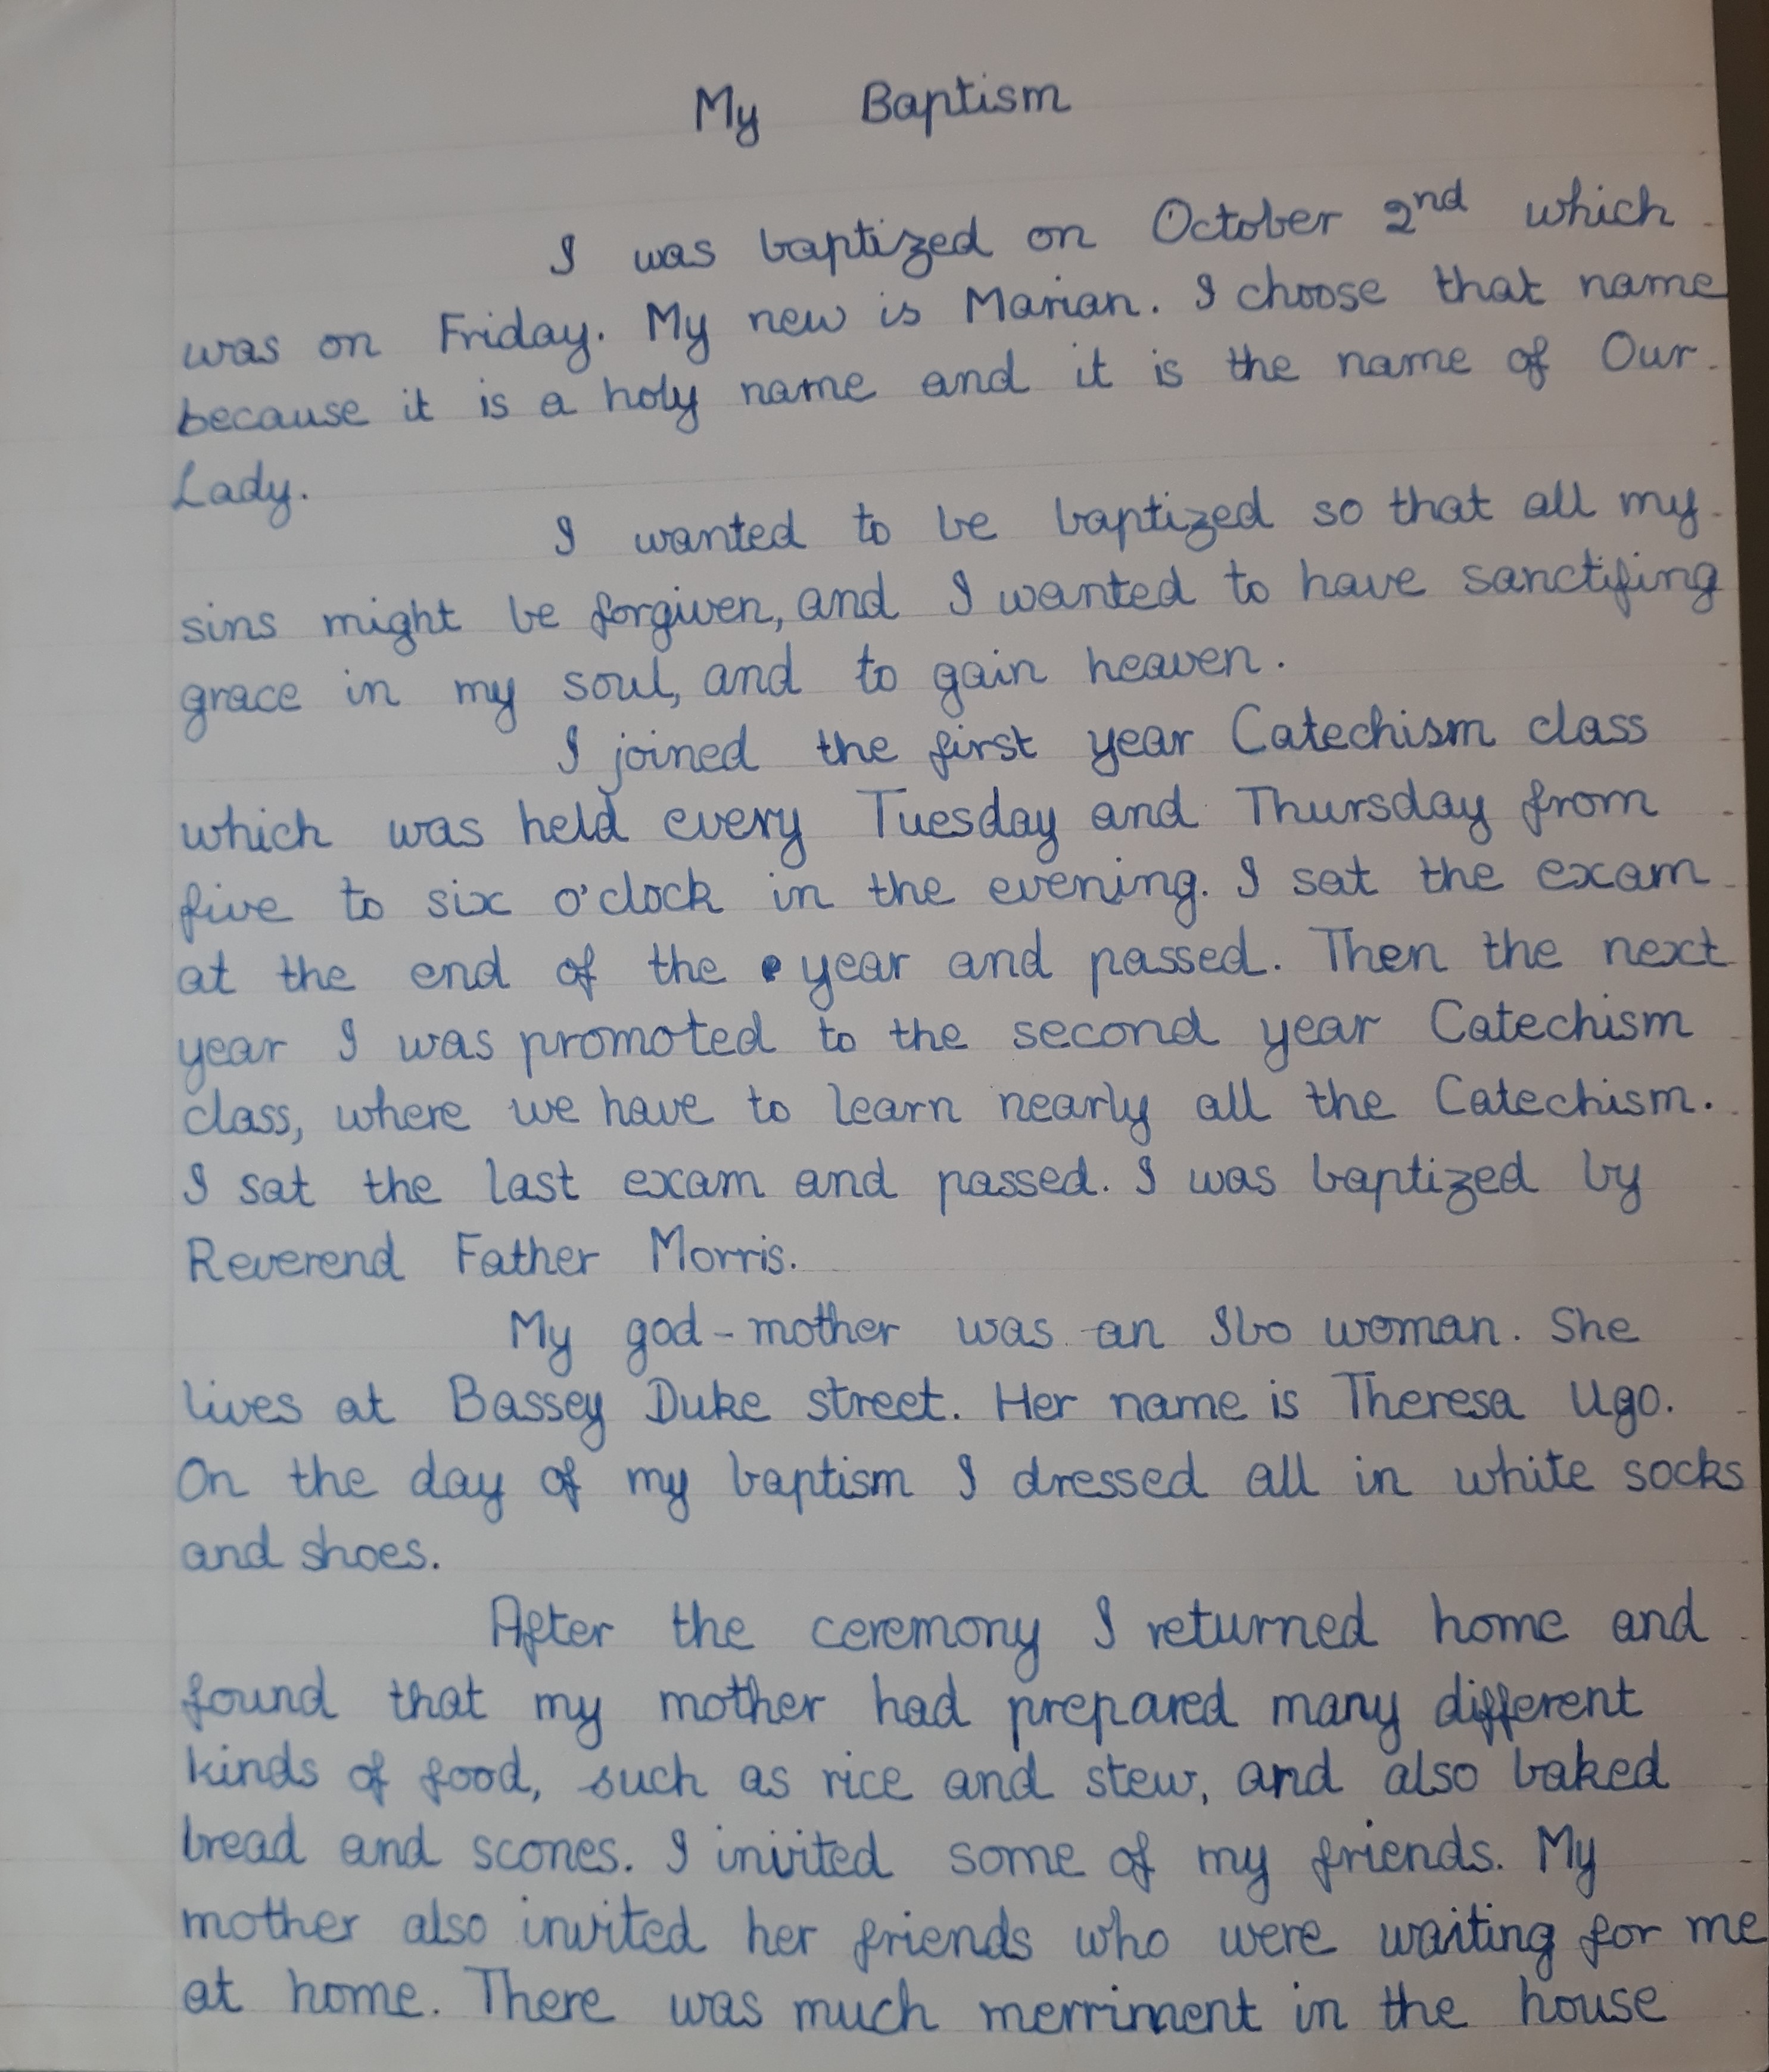 My Baptism
I was baptized on October 2nd which
was on Friday. My new is Marian. I choose that name
because it is a holy name and it is the name of Our
Lady.
I wanted to be baptized so that all my
sins might be forgiven, and I wanted to have sanctifing
grace in my soul, and to gain heaven.
I joined the first year Catechism class
which was held every Tuesday and Thursday from
five to six o'clock in the evening. I sat the exam
at the end of the year and passed. Then the next
year I was promoted to the second year Catechism
class, where we have to learn nearly all the Catechism.
I sat the last exam and passed. I was baptized by
Reverend Father Morris.
My god-mother was an Ibo woman. She
lives at Bassey Duke street. Her name is Theresa Ugo.
On the day of my baptism I dressed all in white socks
and shoes.
After the ceremony I returned home and
found that my mother had prepared many different
kinds of food, such as rice and stew, and also baked
bread and scones. I invited some of my friends. My
mother also invited her friends who were waiting for me
at home. There was much merriment in the house